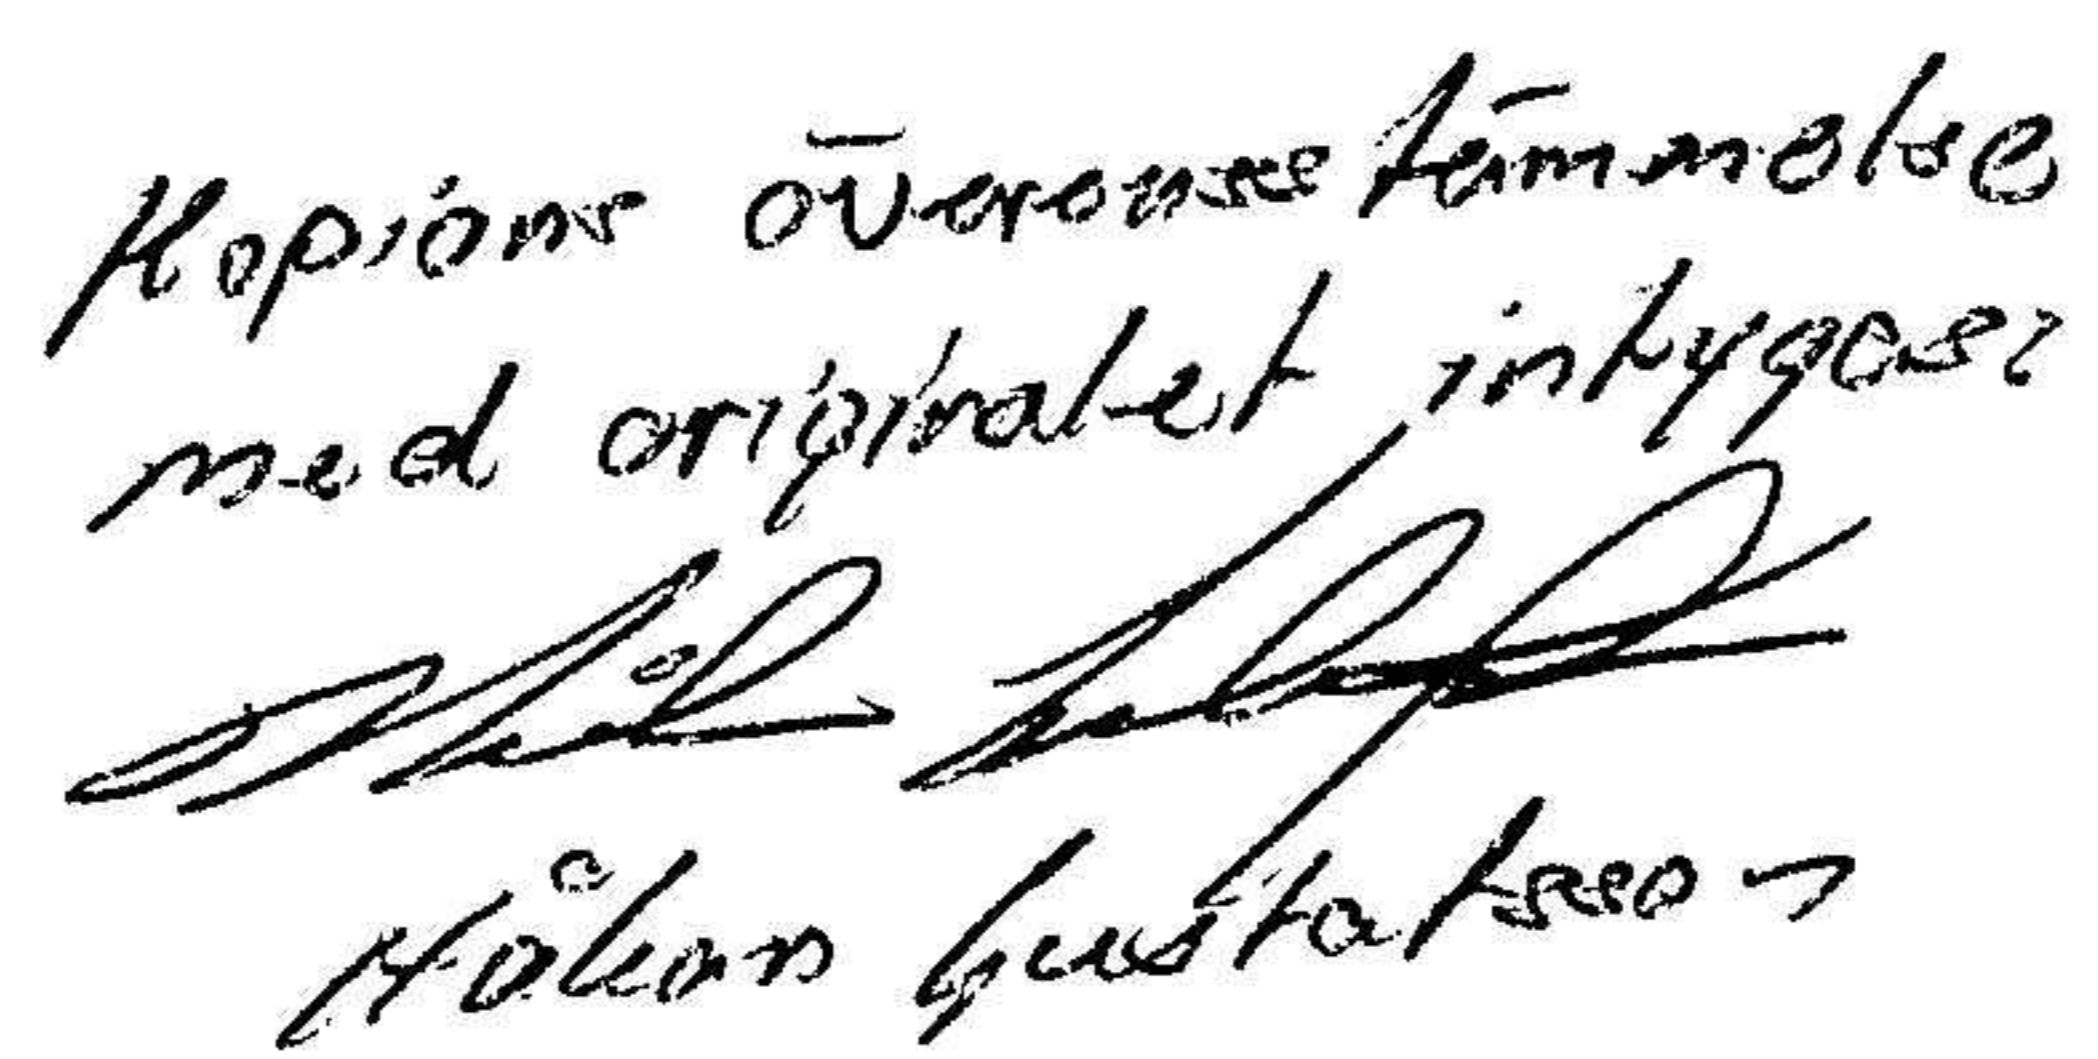 Kopians överensstämmelse
med originalet intygas:
Håkan Gustafsson